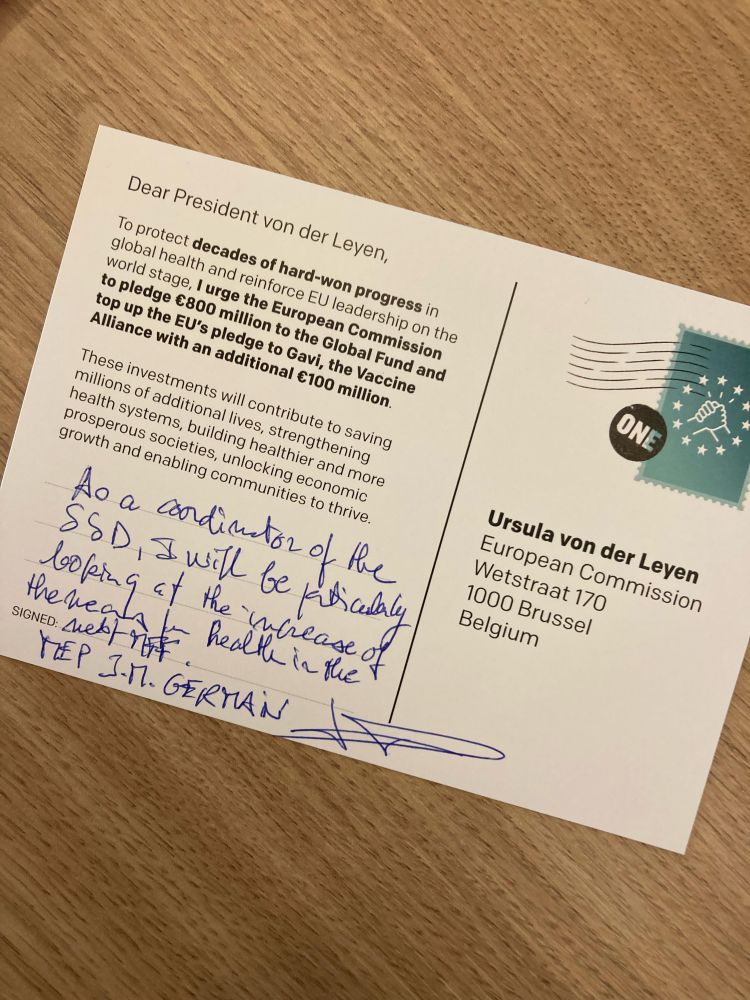 Dear President von der Leyen,
To protect decades of hard-won progress in
global health and reinforce EU leadership on the
world stage, I urge the European Commission
to pledge €800 million to the Global Fund and
top up the EU's pledge to Gavi, the Vaccine
Alliance with an additional €100 million.
These investments will contribute to saving
millions of additional lives, strengthening
health systems, building healthier and more
prosperous societies, unlocking economic
growth and enabling communities to thrive.
As a coordinator of the
SSD, I will be particularly
looking at the increase of
the means for health in the
SIGNED: next MFF.
MEP J.M. GERMAIN
ONE
Ursula von der Leyen
European Commission
Wetstraat 170
1000 Brussel
Belgium